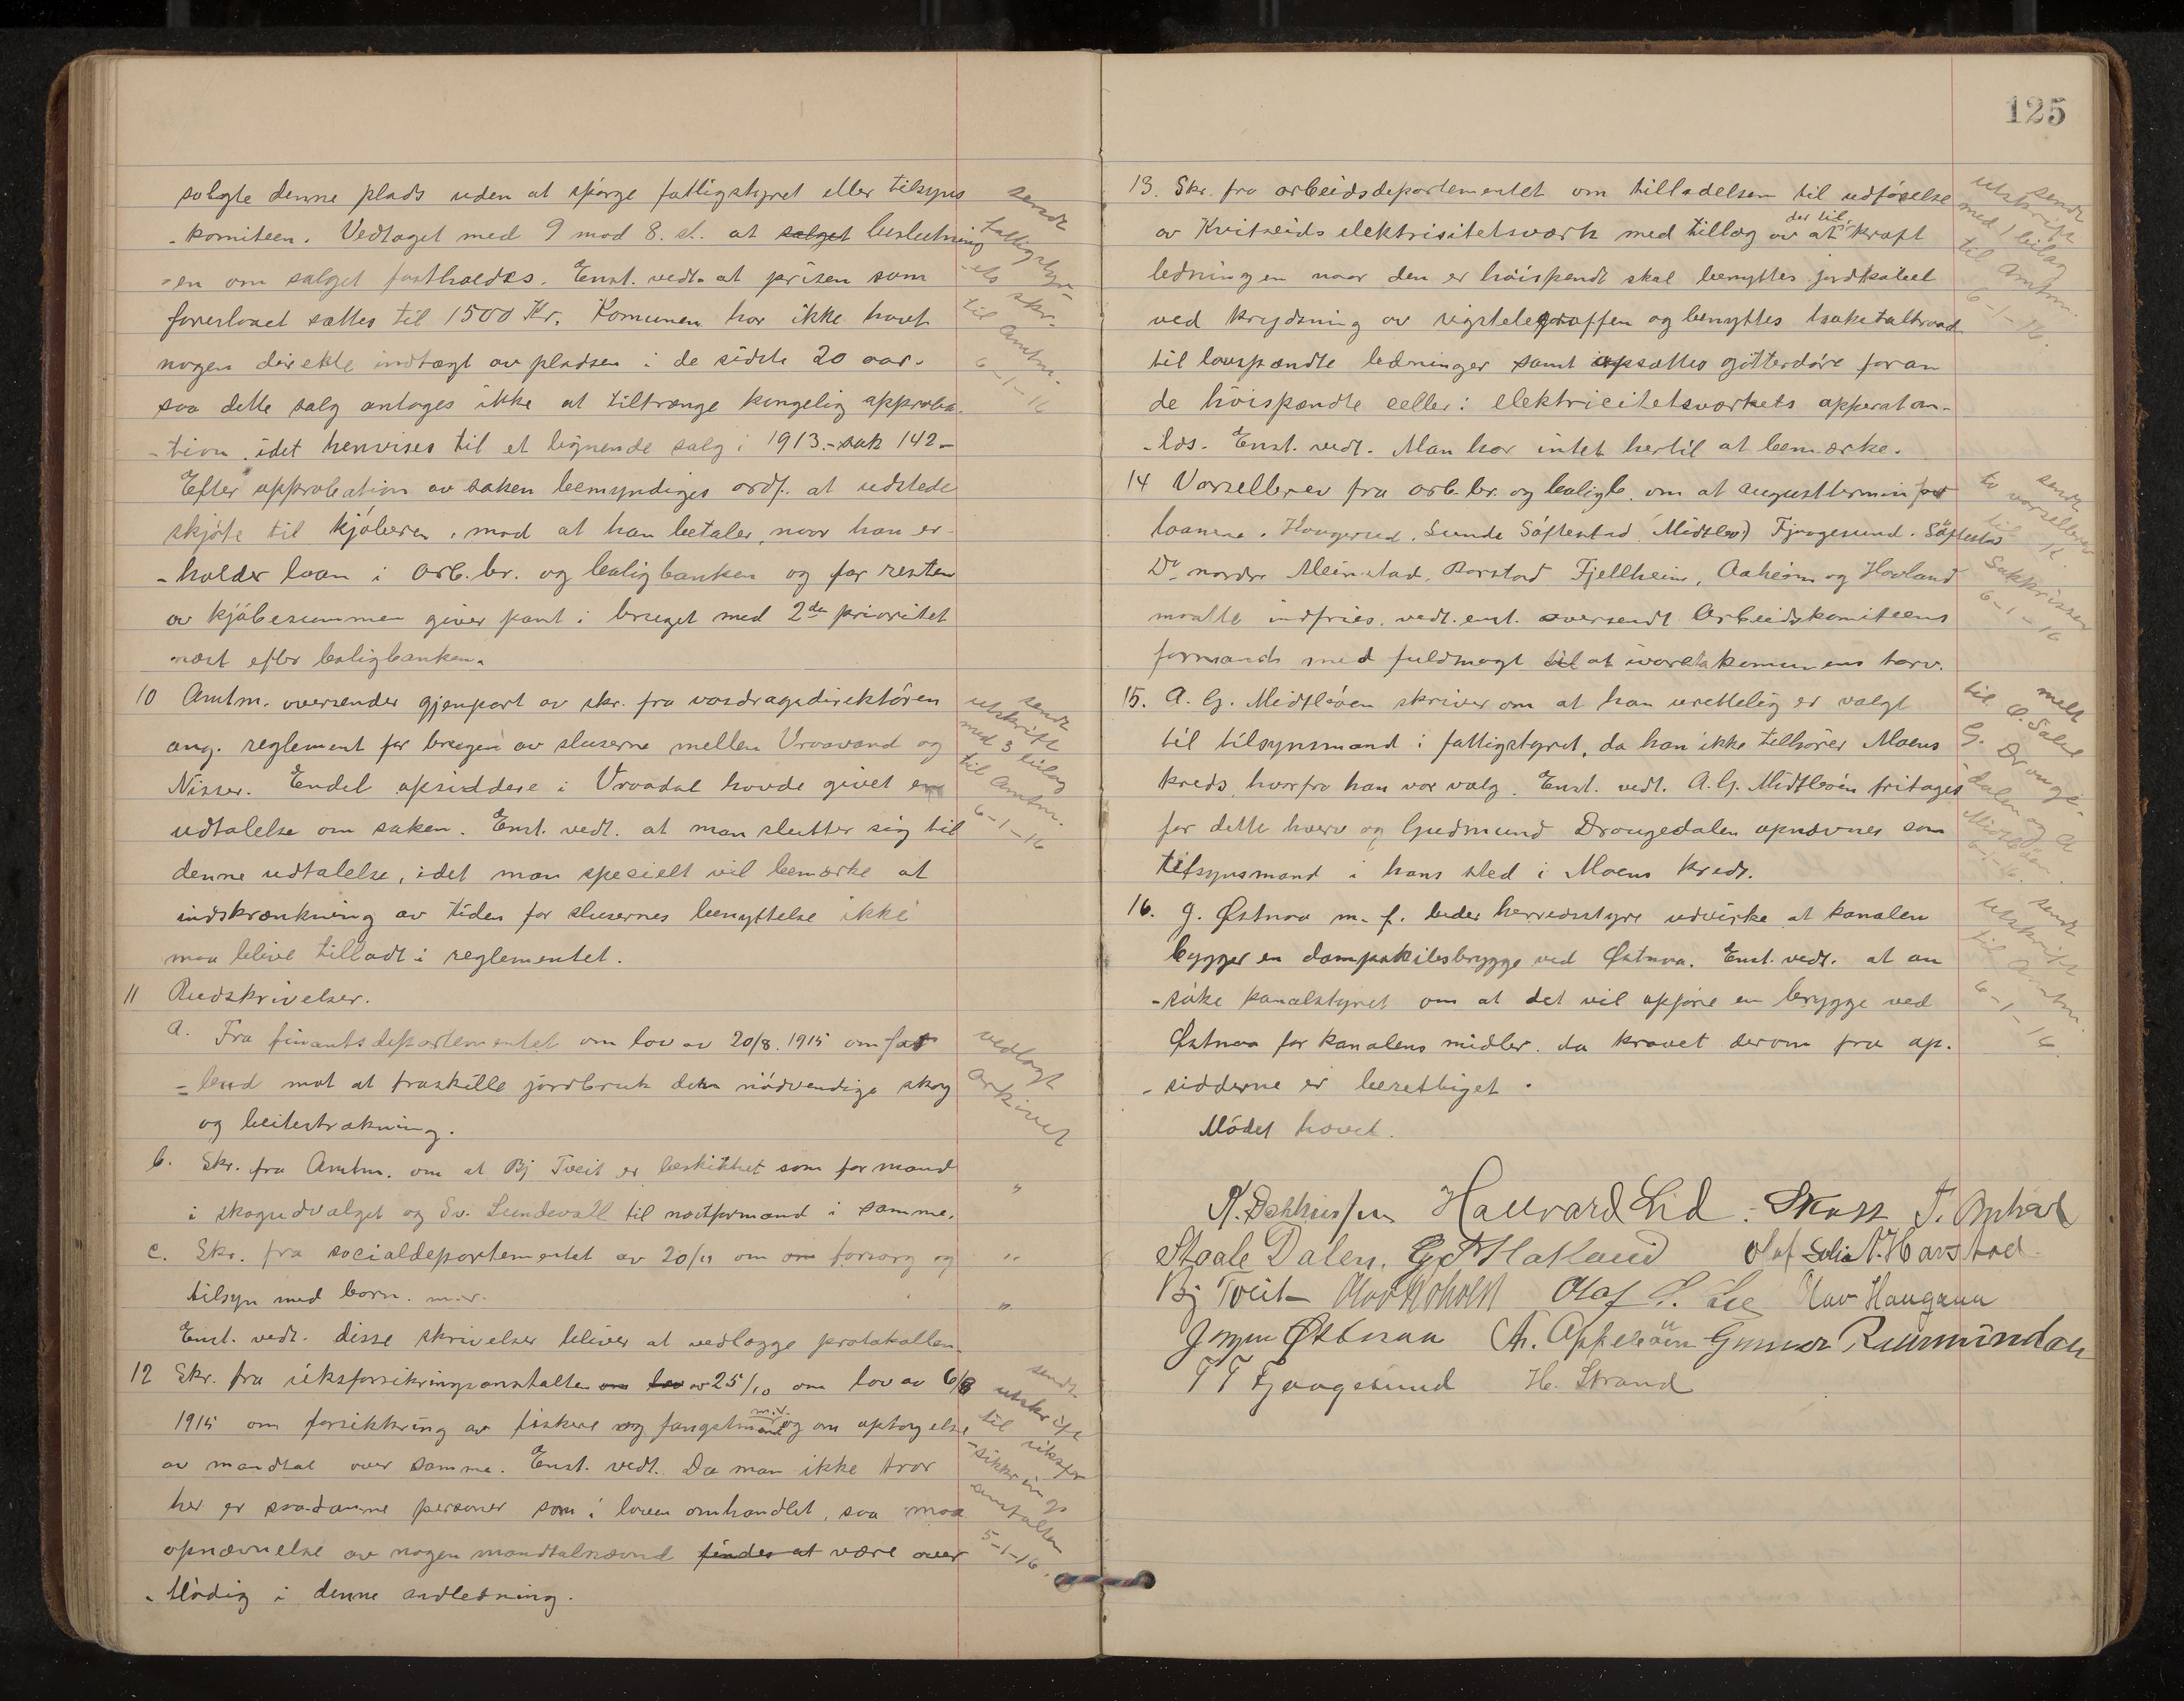 solgte denne plads uden at spörge fattigstyret eller tilsyns
-komiteen. Vedtaget med 9 mod 8. st. at salget beslutning
-en om salget fastholdes. Enst. vedt. at prisen som
foreslaaet sættes til 1500 Kr. Komunen har ikke havt
nogen direkte indtægt av pladsen i de sidste 20 aar.
saa dette salg antages ikke at tiltrænge kongelig approba-
-tion. idet henvises til et lignende salg i 1913.-sak 142-
Efter approbation av saken bemyndiges ordf. at udstede
skjöte til kjöberen, mod at han betaler, naar han er-
-holder laan i Arb.br. og boligbanken og for resten
av kjöbesummen giver pant i bruget med 2den prioritet
næst efter boligbanken.
sendt
fattigstyr
-ets skr.
til Amtm.
6-1-16
10 Amtm. oversender gjenpart av skr. fra vasdragsdirektören
ang. reglement for brugen av sluserne mellem Vraavand og
Nisser. Endel opsiddere i Vraadal havde givet en
udtalelse om saken. Enst. vedt. at man slutter sig til
denne udtalelse, idet man spesielt vil bemærke at
indskrænkning av tiden for slusernes benyttelse ikke
maa blive tilladt i reglementet.
sendt
utskrift
med 3 bilag
til Amtm.
6-1-16
11 Rudskrivelser.
a. Fra finantsdepartementet om lov av 20/8. 1915 om for
-bud mot at fraskille jordbruk den nödvendige skog
og beitestrækning.
vedlagt
Arkivet
b. Skr. fra Amtm. om at Bj Tveit er beskikket som formand
i skogudvalget og Sv. Lundevall til næstformand i samme. "
c. Skr. fra socialdepartementet av 20/11 om om forsorg og "
tilsyn med born. m.v. "
Enst. vedt. disse skrivelser bliver at vedlægge protokollen.
12 Skr. fra riksforsikringsanstalten om lov av 25/10 om lov av 6/8
1915 om forsikkring av fiskere og fangstmænd m.v. og om optagelse
av mandtal over samme. Enst. vedt. Da man ikke tror
her er saadanne personer som i loven omhandlet, saa maa
opnævnelse av nogen mandtalnævnd findes at være over
-flödig i denne andledning.
sendt
utskrift
til riksfor
-sikkrings
anstalten
5-1-16.
125
13. Skr. fra arbeidsdepartementet om tilladelsen til udförelse
av Kvitseids elektrisitetsværk med tillæg av at der til kraft
ledningen naar den er höispendt skal benyttes jordkabel
ved krydsning av rigstelegraffen og benyttes
til lavspændte ledninger samt opsættes gitterdöre foran
de höispændte celler i elektricitetsværkets apparatan-
-læs. Enst. vedt. Man har intet hertil at bemærke.
sendt
utskrift
med 1 bilag
til Amtm.
6-1-16.
14 Varselbrev fra arb.br. og boligb. om at augusttermin for
laanene. Haugerud, Sunde Söftestad (Midtböo) Fjaagesund. Söftestad
Do nordre Meinstad, Borstad Fjellheim, Aaheim og Hovland
maatte indfries. vedt. enst. oversendt Arbeidskomiteens
formands med fuldmagt til at ivareta komunens tarv.
sendt
to varselbrev
til K.
Sakkrissen
6-1-16
15. A. G. Midtböen skriver om at han urettelig er valgt
til tilsynsmand i fattigstyret, da han ikke tilhörer Moens
kreds, hvorfra han var valg. Enst. vedt. A.G. Midtböen fritages
for dette hverv og Gudmund Draugedalen opnævnes som
tilsynsmand i hans sted i Moens kreds.
melt
til O. Salve
G. Drauge-
dalen og A
Midtböen
6-1-16.
16. J. Østnaa m. f. beder herredsstyre udvirke at kanalen
bygger en dampskibsbrygge ved Østnaa. Enst. vedt. at an
-söke kanalstyret om at det vil opföre en brygge ved
Østnaa for kanalens midler. da kravet derom fra op-
-sidderne er berettiget.
sendt
utskrift
til Amtm.
6-1-16.
Mödet hævet.
Hallvard Lid
Staale Dalen. Olaf N. Havstad
Bj Tveit Olaf S. Lie Olav Haugann
Jörgen Østenaa Th. Appeböen Gunnar Ruemundal
T T Fjaagesund H. Strand